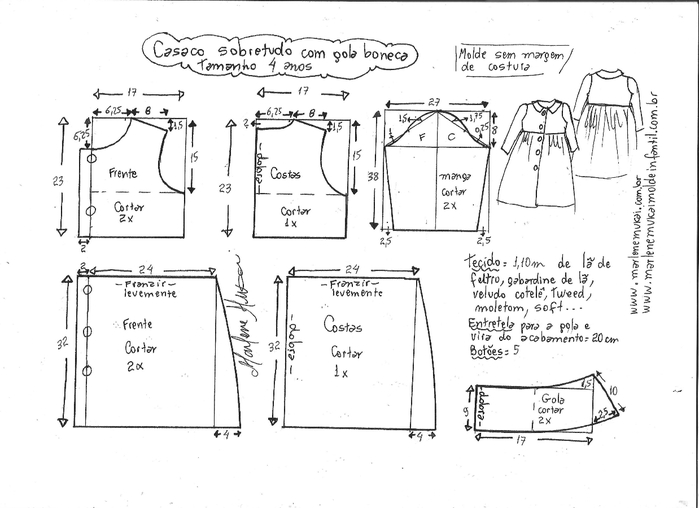 Casaco sobretudo com gola boneca
Tamanho 4 anos
Molde sem margem
de costura
17
6,25
8
1,5
6,25
15
23
Frente
Cortar
2x
2
17
6,25
8
2
1,5
15
23
-dobra-
Costas
Cortar
1x
27
1,5
1,75
0,75
1
8
F
C
38
manga
cortar
2x
2,5
2,5
www.marlenemukai.com.br
www.marlenemukaimoldeinfantil.com.br
2
24
-Franzir-
levemente
32
Frente
Cortar
2x
4
Marlene Mukai
24
-Franzir-
levemente
32
-dobra-
Costas
Cortar
1x
4
Tecido= 1,10m de lã de
feltro, gabardine de lã,
veludo cotelê, Tweed,
moletom, soft...
Entretela para a gola e
vira do acabamento= 20cm
Botões= 5
9
-dobra-
Gola
cortar
2x
1,5
10
2,5
17